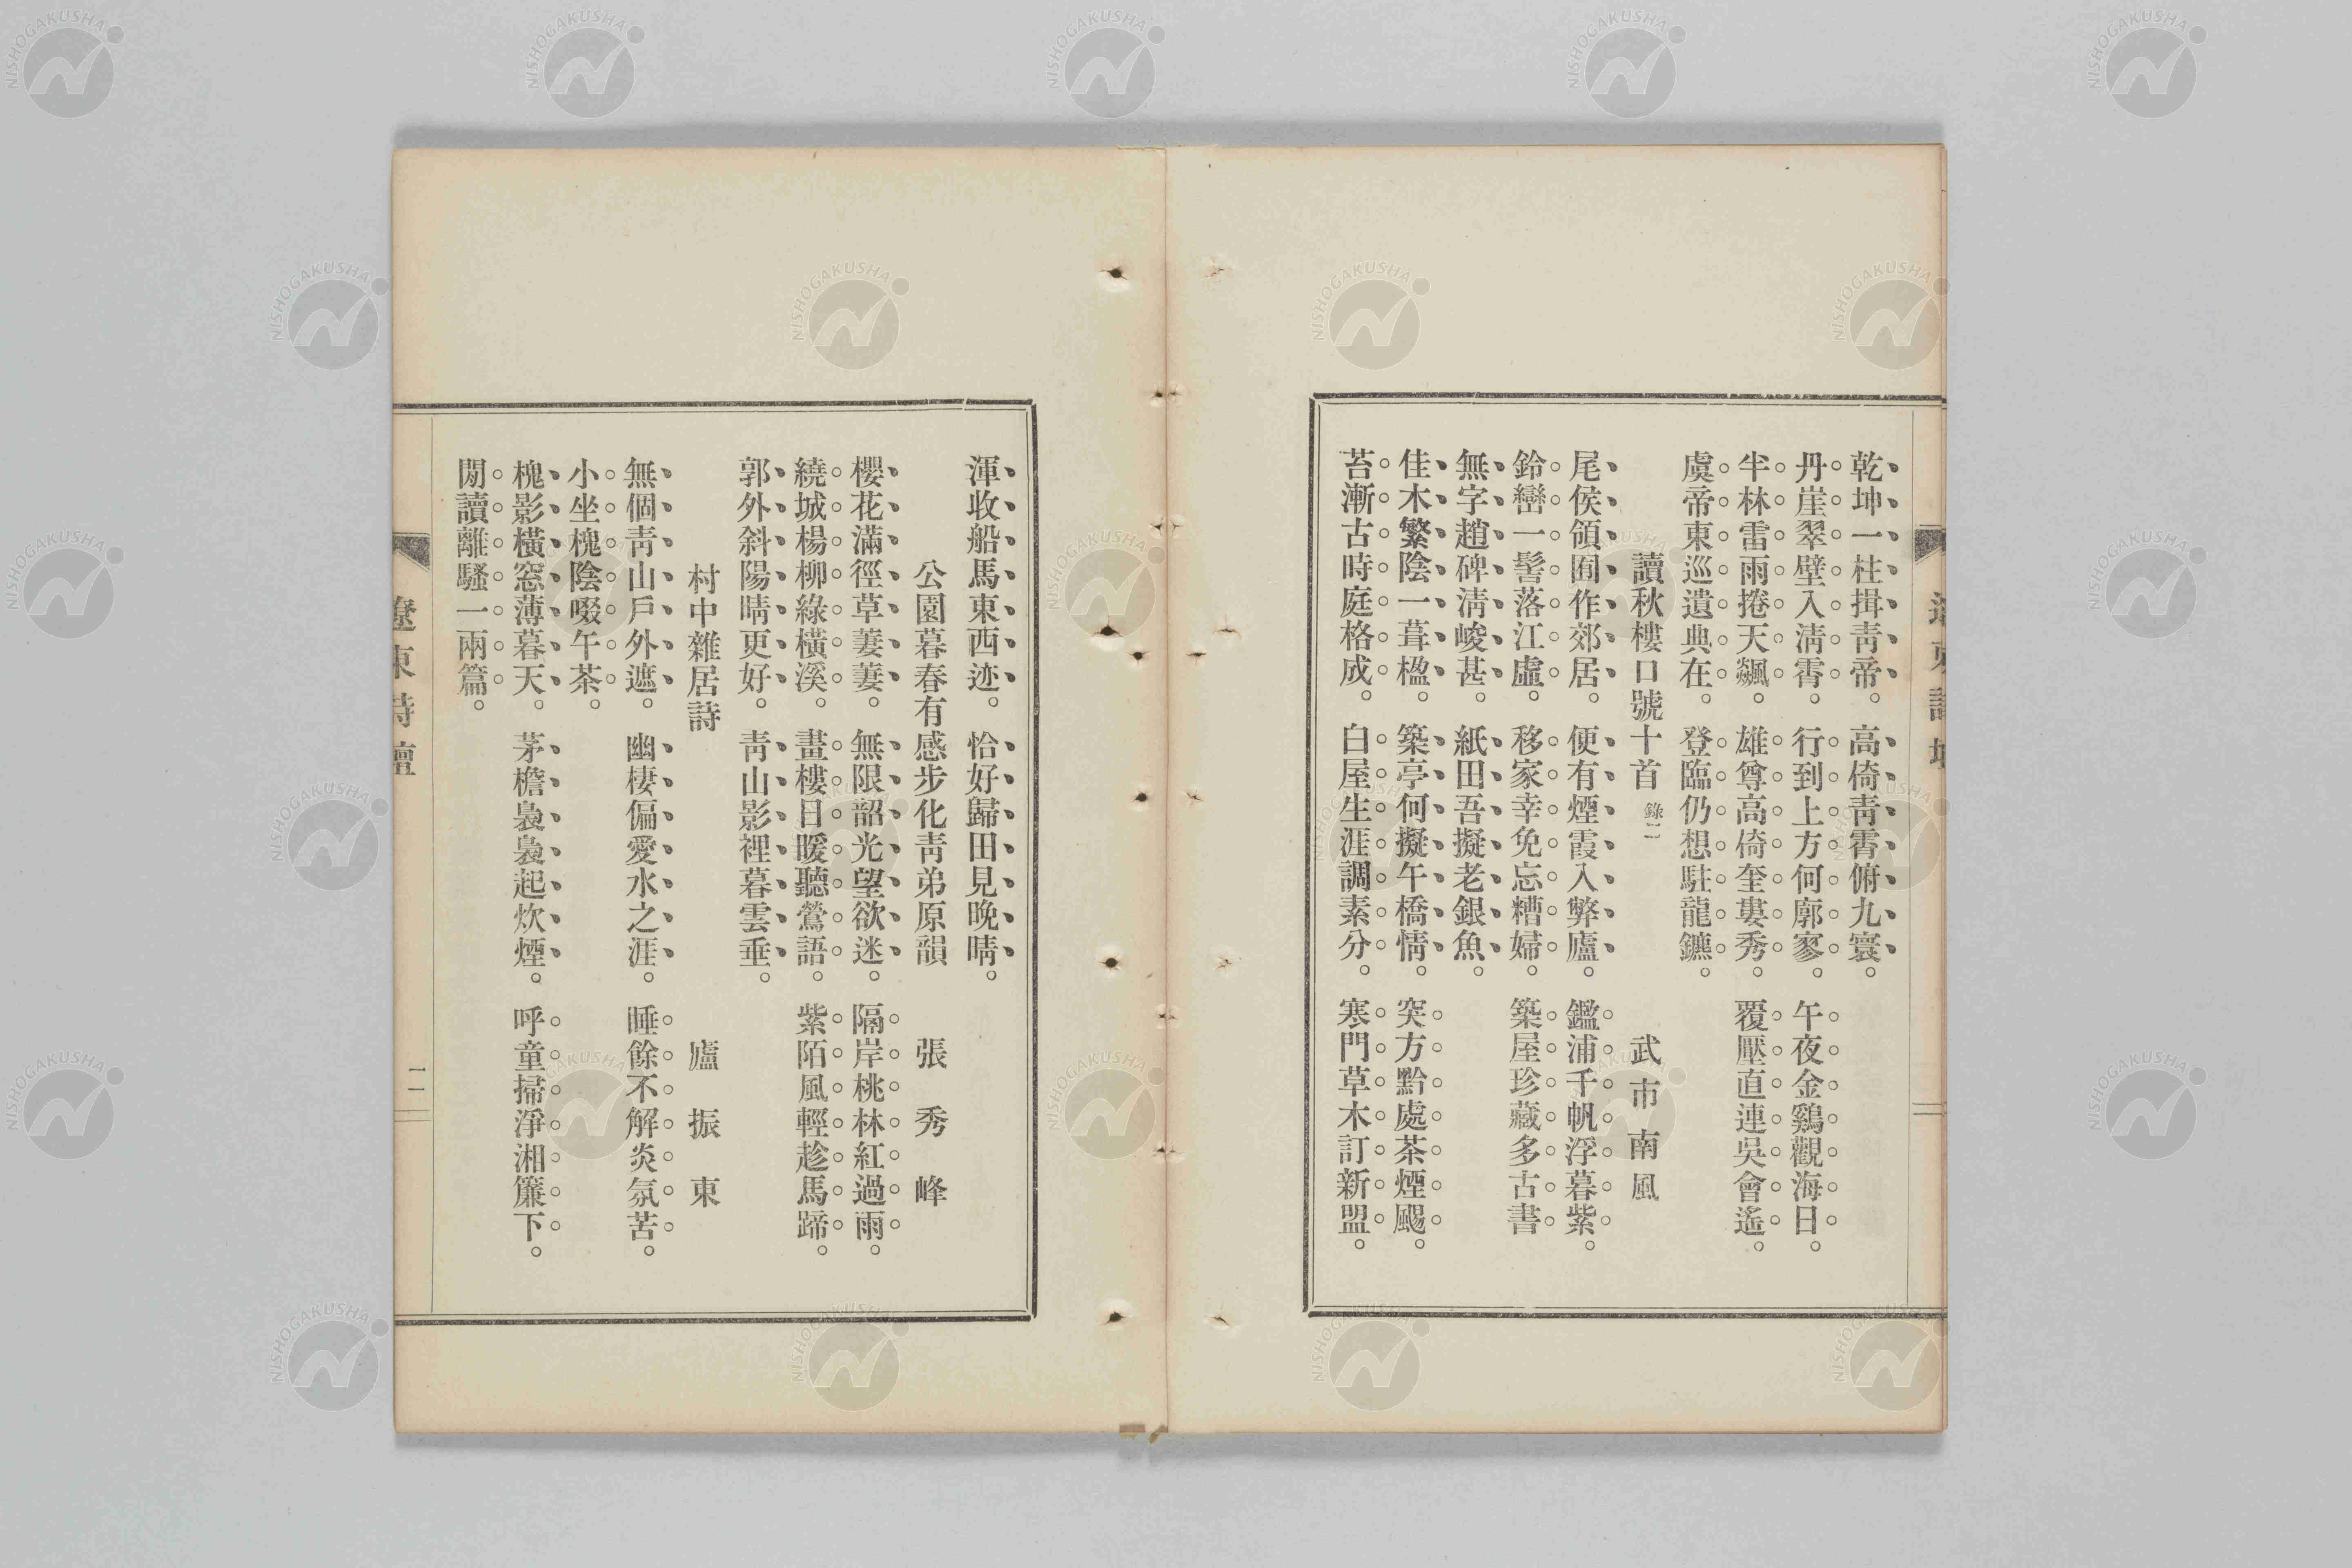 乾坤一柱揖靑帝。高倚靑霄俯九寰。
丹崖翠壁入淸霄。行到上方何廓寥。午夜金鷄觀海日。
半林雷雨捲天飆。雄尊高倚奎婁秀。覆壓直連吳會遙。
虞帝東巡遺典在。登臨仍想駐龍鑣。
讀秋樓口號十首 錄二 武市南風
尾侯領囿作郊居。便有煙霞入弊廬。鑑浦千帆浮暮紫。
鈴巒一髻落江虛。移家幸免忘糟婦。築屋珍藏多古書
無字趙碑淸峻甚。紙田吾擬老銀魚。
佳木繁陰一葺楹。築亭何擬午橋情。突方黔處茶煙颺。
苔漸古時庭格成。白屋生涯調素分。寒門草木訂新盟。
渾收船馬東西迹。恰好歸田見晚晴。
公園暮春有感步化靑弟原韻 張秀峰
櫻花滿徑草萋萋。無限韶光望欲迷。隔岸桃林紅過雨。
繞城楊柳綠橫溪。畫樓日暖聽鶯語。紫陌風輕趁馬蹄。
郭外斜陽晴更好。靑山影裡暮雲垂。
村中雜居詩 廬振東
無個靑山戶外遮。幽棲偏愛水之涯。睡餘不解炎氛苦。
小坐槐陰啜午茶。
槐影橫窓薄暮天。茅檐裊裊起炊煙。呼童掃淨湘簾下。
閒讀離騷一兩篇。
遼東詩壇
一一
NISHOGAKUSHA